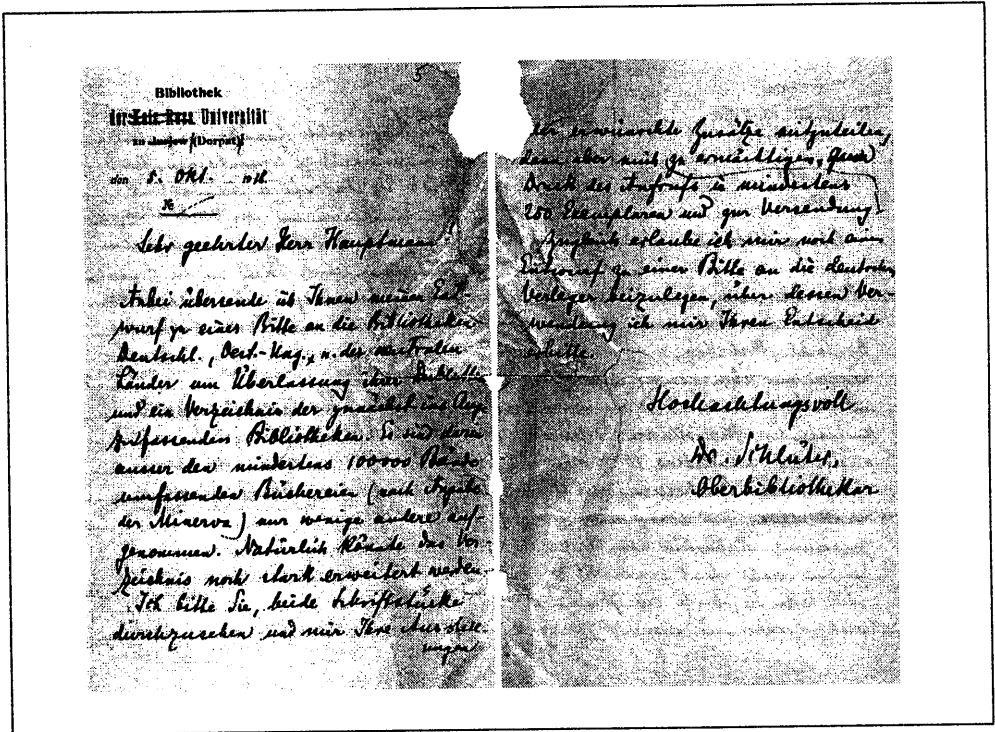 5
Bibliothek
der Kais. Russ. Universität
zu Jurjew (Dorpat)
den 5. Okt. 1918.
№
Sehr geehrter Herr Hauptmann!
Anbei übersende ich Ihnen meinen Ent-
wurf zu einer Bitte an die Bibliotheken
Deutschl., Oest.-Ung., u. der neutralen
Länder um Überlassung ihrer Dublette
und ein Verzeichnis der zunächst ins Auge
zu fassenden Bibliotheken. Es sind darin
ausser den mindestens 100000 Bände
umfassenden Büchereien (nach
der Minerva) nur wenige andere auf-
genommen. Natürlich könnte das Ver-
zeichnis noch stark erweitert werden.
Ich bitte Sie, beide Schriftstücke
durchzusehen und mir Ihre Ausstell-
ungen
oder erwünschte Zusätze mitzuteilen,
dann aber mich zu ermächtigen, zum
Druck des Aufrufs in mindestens
200 Exemplaren und zur Versendung.
Zugleich erlaube ich mir noch einen
Entwurf zu einer Bitte an die deutschen
Verleger beizulegen, über dessen Ver-
wendung ich mir Ihren Entscheid
erbitte.
Hochachtungsvoll
Dr. Schlüter,
Oberbibliothekar